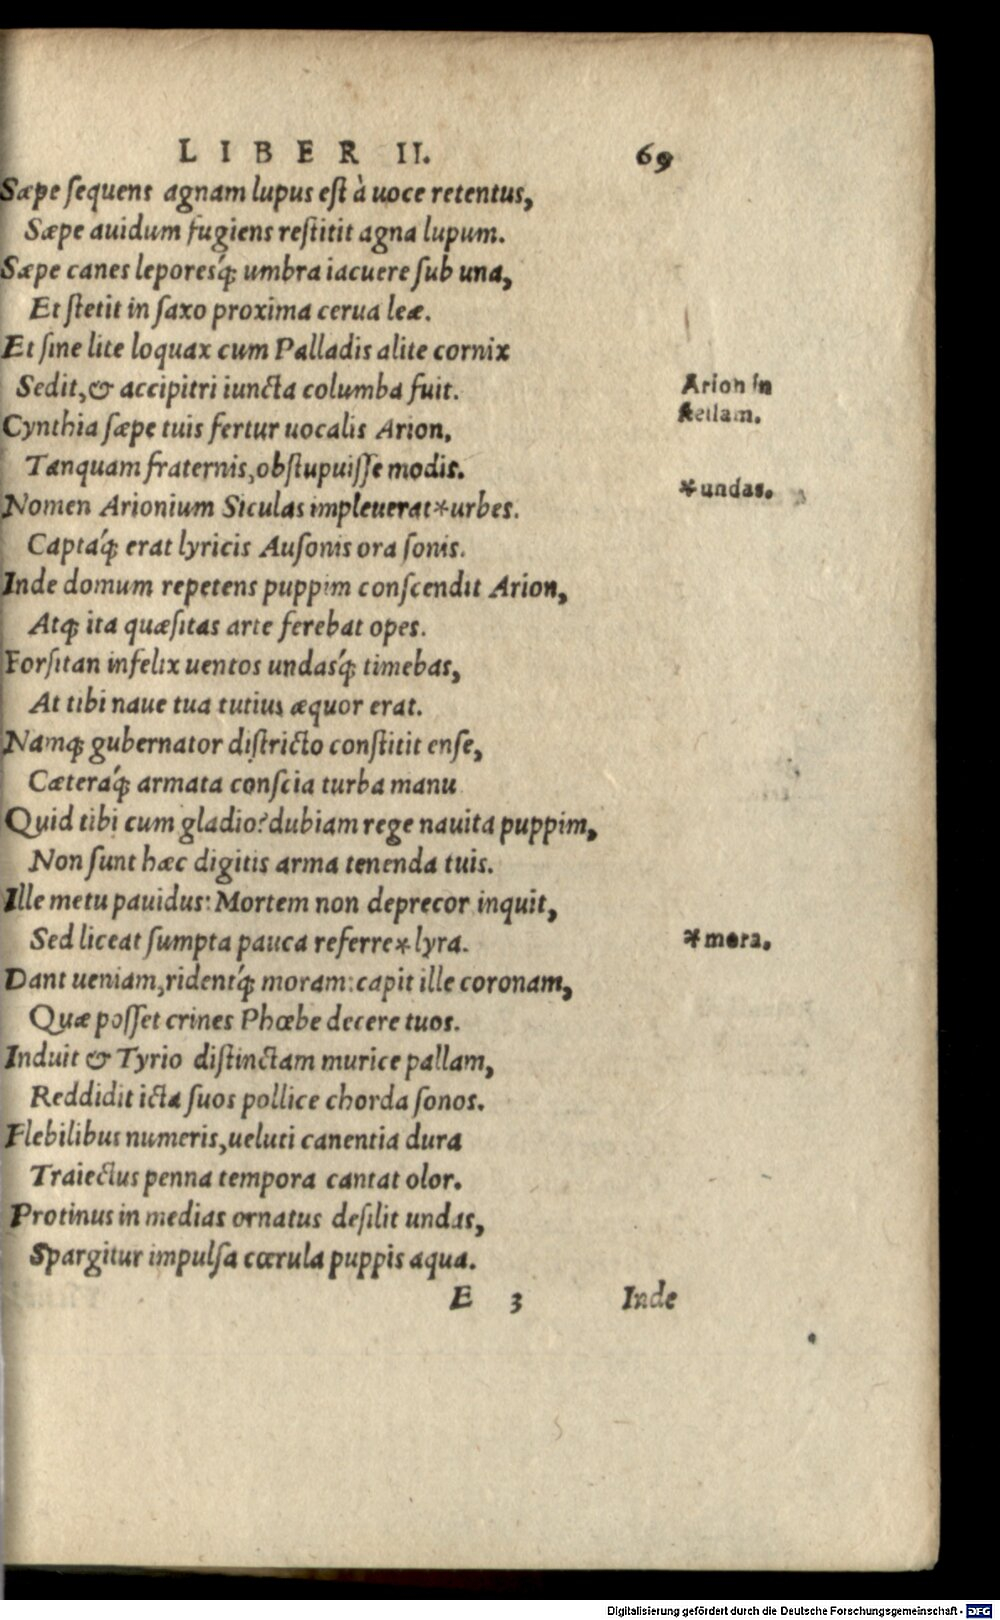 LIBER II. 69
Sæpe ſequens agnam lupus eſt à uoce retentus,
Sæpe auidum fugiens reſtitit agna lupum.
Sæpe canes leporesq́; umbra iacuere ſub una,
Et ſtetit in ſaxo proxima cerua leæ.
Et ſine lite loquax cum Palladis alite cornix
Sedit, & accipitri iuncta columba fuit.
Arion in
ſtellam.
Cynthia ſæpe tuis fertur uocalis Arion,
Tanquam fraternis, obſtupuiſſe modis.
Nomen Arionium Siculas impleuerat*urbes.
*undas.
Captaq́; erat lyricis Auſonis ora ſonis.
Inde domum repetens puppim conſcendit Arion,
Atq; ita quæſitas arte ferebat opes.
Forſitan infelix uentos undasq́; timebas,
At tibi naue tua tutius æquor erat.
Namq; gubernator diſtricto conſtitit enſe,
Cæteraq́; armata conſcia turba manu
Quid tibi cum gladio? dubiam rege nauita puppim,
Non ſunt hæc digitis arma tenenda tuis.
Ille metu pauidus: Mortem non deprecor inquit,
Sed liceat ſumpta pauca referre*lyra.
*mora.
Dant ueniam, ridentq́; moram: capit ille coronam,
Quæ poſſet crines Phœbe decere tuos.
Induit & Tyrio diſtinctam murice pallam,
Reddidit icta ſuos pollice chorda ſonos.
Flebilibus numeris, ueluti canentia dura
Traiectus penna tempora cantat olor.
Protinus in medias ornatus deſilit undas,
Spargitur impulſa cœrula puppis aqua.
E 3 Inde
Digitalisierung gefördert durch die Deutsche Forschungsgemeinschaft - DFG